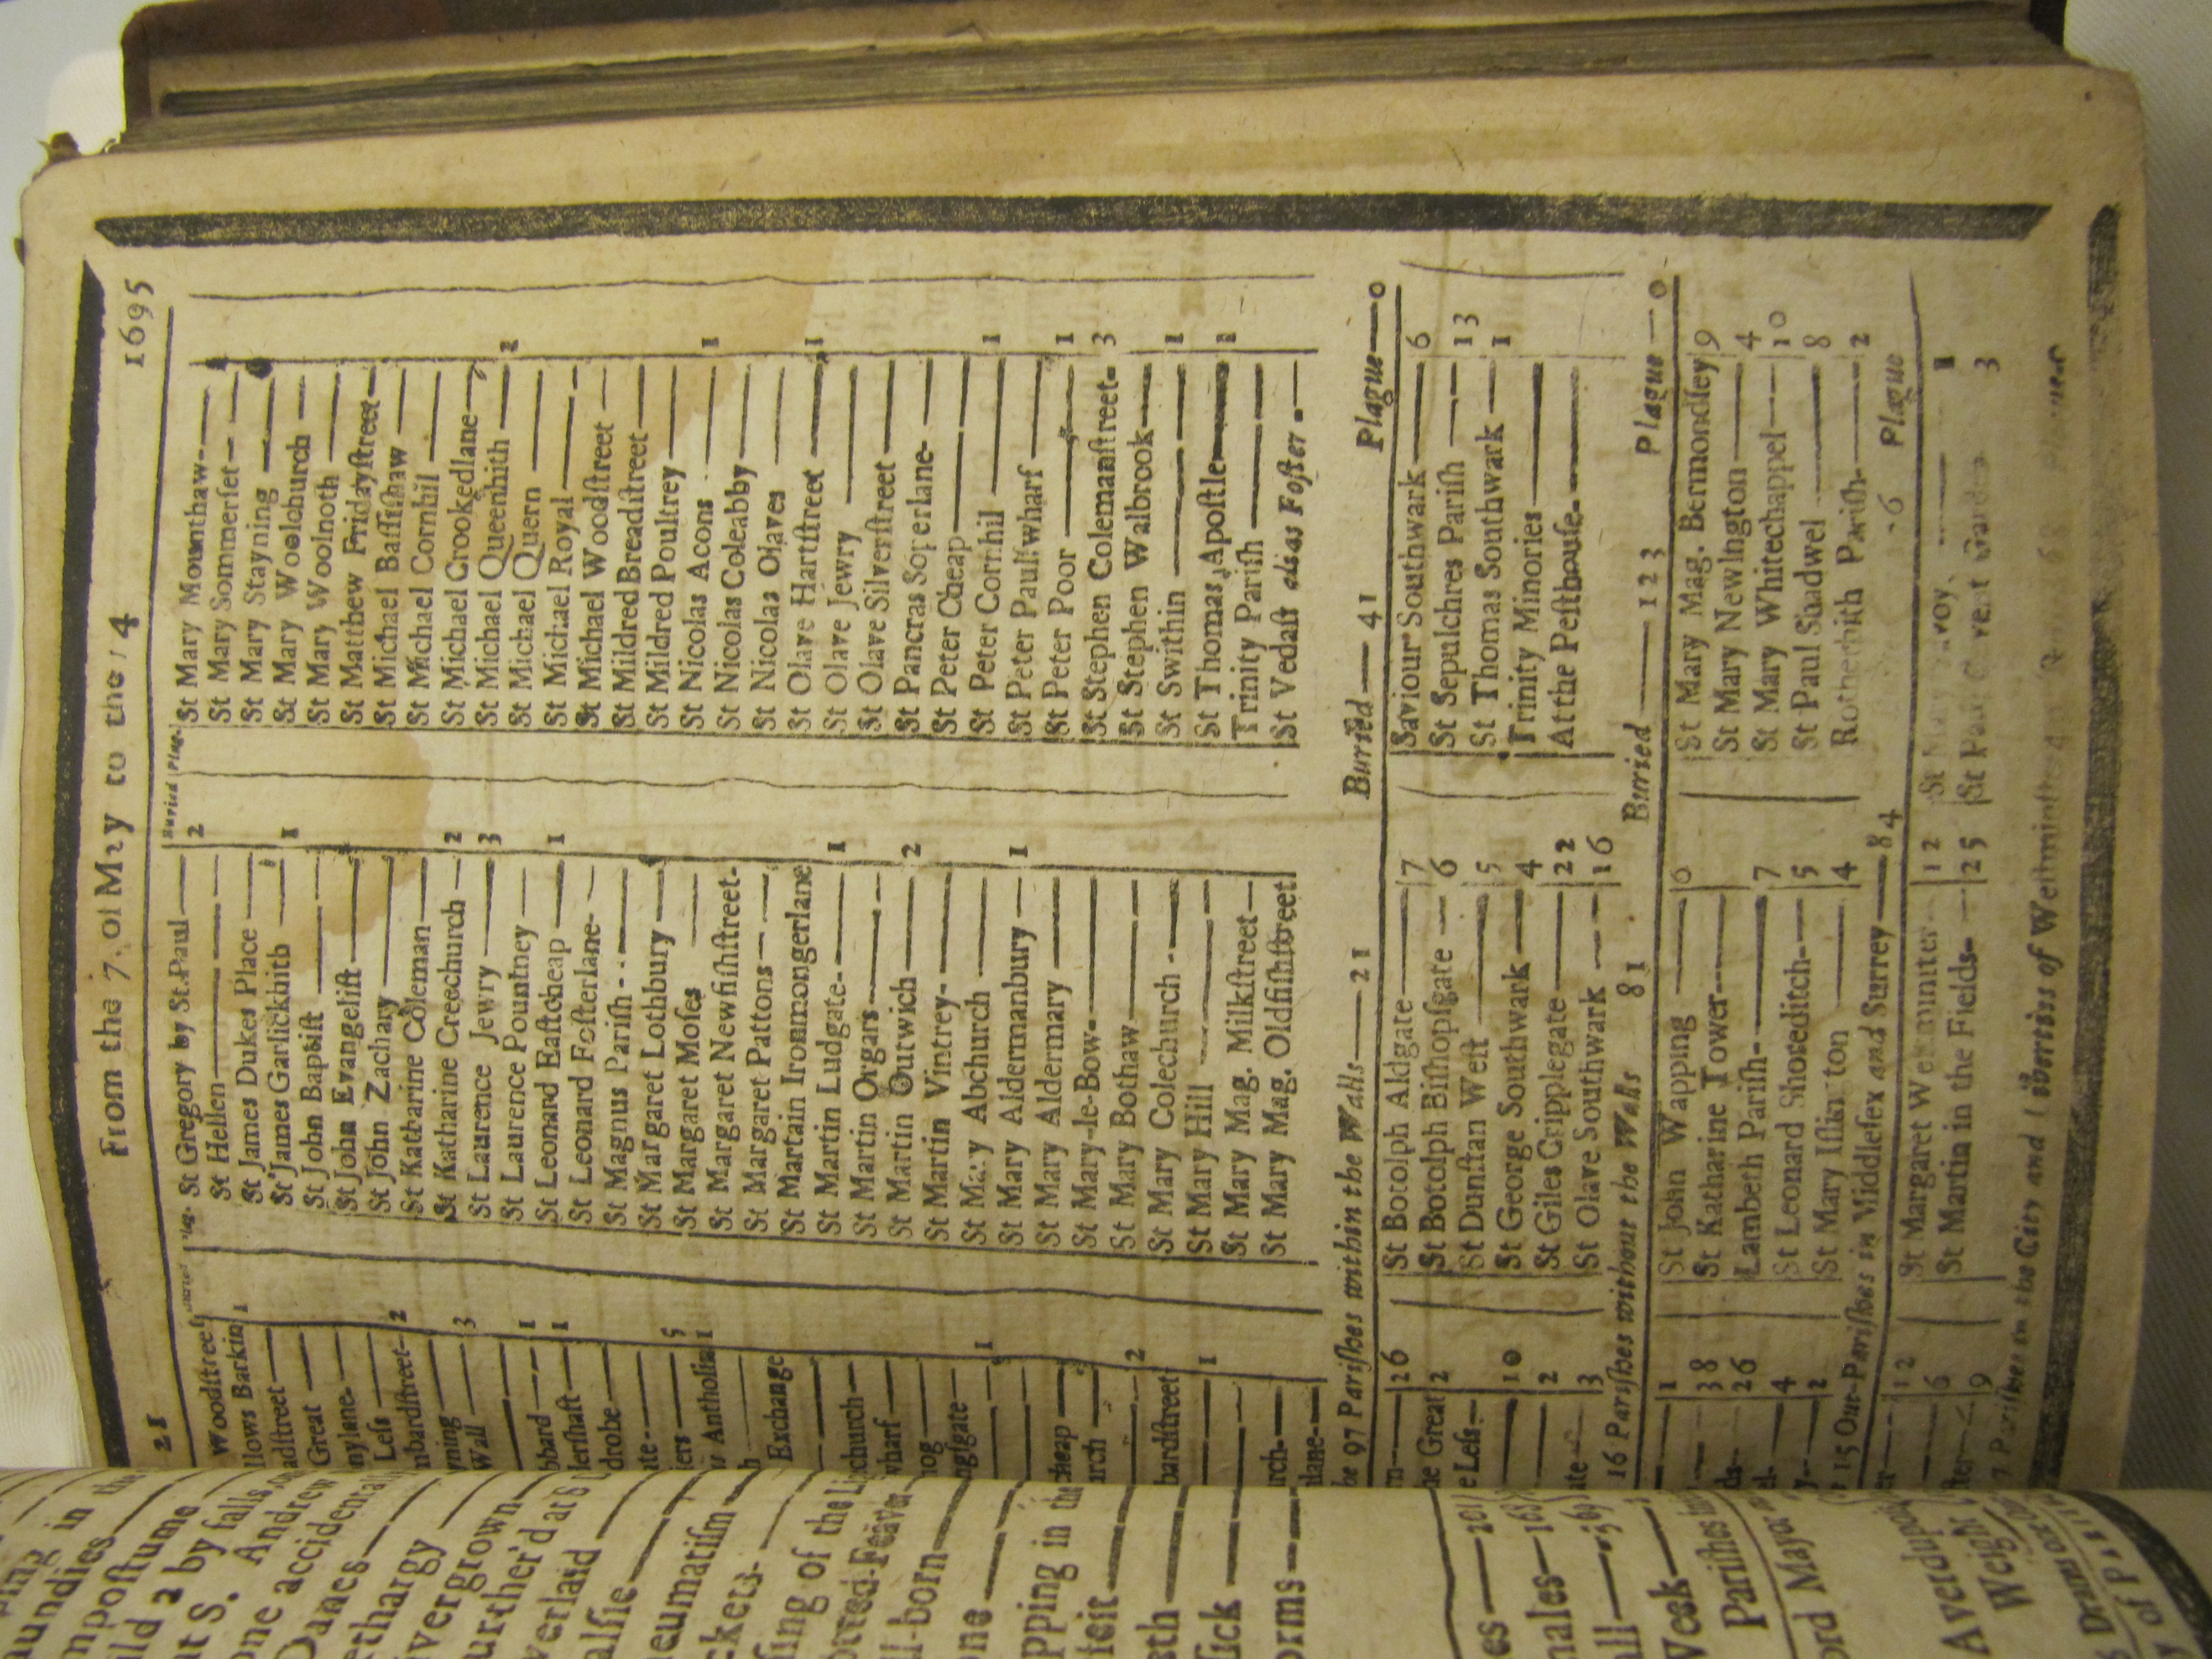 21 From the 7. of May to the 14 1695
Woodstreet
llows Barkin 1
adstreet
Great
nylane
Less
mbardstreet 2
yning
Wall 3
bbard 1
dershaft 1
drobe
ate
iers 5
s Antholin 1
Exchange
church
wharf
ngsgate
1
cheap
urch
2
bardstreet
1
rch
lane
Buried Plag.
St Gregory by St. Paul 2
St Hellen
St James Dukes Place
St James Garlickhith 1
St John Baptist
St John Evangelist
St John Zachary
St Katharine Coleman
St Katharine Creechurch 2
St Laurence Jewry 3
St Laurence Pountney
St Leonard Eastcheap 1
St Leonard Fosterlane
St Magnus Parish
St Margaret Lothbury
St Margaret Moses
St Margaret Newfishstreet
St Margaret Pattons
St Martain Ironmongerlane
St Martin Ludgate 1
St Martin Orgars
St Martin Outwich 2
St Martin Vintrey
St Mary Abchurch
St Mary Aldermanbury 1
St Mary Aldermary
St Mary-le-Bow
St Mary Bothaw
St Mary Colechurch
St Mary Hill
St Mary Mag. Milkstreet
St Mary Mag. Oldfishstreet
Buried Plag.
St Mary Mounthaw
St Mary Sommerset
St Mary Stayning
St Mary Woolchurch
St Mary Woolnoth
St Matthew Fridaystreet
St Michael Bassishaw
St Michael Cornhil
St Michael Crookedlane
St Michael Queenhith 2
St Michael Quern
St Michael Royal
St Michael Woodstreet
St Mildred Breadstreet
St Mildred Poultrey
St Nicolas Acons 1
St Nicolas Coleabby
St Nicolas Olaves
St Olave Hartstreet 1
St Olave Jewry
St Olave Silverstreet
St Pancras Soperlane
St Peter Cheap
St Peter Cornhil 1
St Peter Paulswharf
St Peter Poor 1
St Stephen Colemanstreet 3
St Stephen Walbrook
St Swithin 1
St Thomas Apostle 1
Trinity Parish
St Vedast alias Foster
he 97 Parishes within the Walls 21 Buried 41 Plague 0
26
he Great 2
e Less
10
2
ate 3
St Botolph Aldgate 7
St Botolph Bishopsgate 6
St Dunstan West 5
St George Southwark 4
St Giles Cripplegate 22
St Olave Southwark 16
Saviour Southwark 6
St Sepulchres Parish 13
St Thomas Southwark 1
Trinity Minories
At the Pesthouse
16 Parishes without the Walls 81 Buried 123 Plague 0
1
38
ds 26
el 4
y 2
St John Wapping 6
St Katharine Tower
Lambeth Parish 7
St Leonard Shoreditch 5
St Mary Islington 4
St Mary Mag. Bermondsey 9
St Mary Newington 4
St Mary Whitechappel 10
St Paul Shadwel 8
Rotherhith Parish 2
15 Out-Parishes in Middlesex and Surrey 84 Plague
12
6
9
St Margaret Westminster 12
St Martin in the Fields 25
St voy 1
St Paul Covent Garden 3
7 Parishes in the City and Liberties of Westminster
aundies
mpostume in the
ild 2 by falls,
at S. Andrew
one accidental
ethargy
vergrown
urther'd at
verlaid
alsie
eumatism
ckets
sing of the Li
potted-Feaver
l-born
one
pping in the
teit
eth
ick
orms
es
nales
all
Week
Parishes
ord Mayor
Averdupois
Weight
Drams